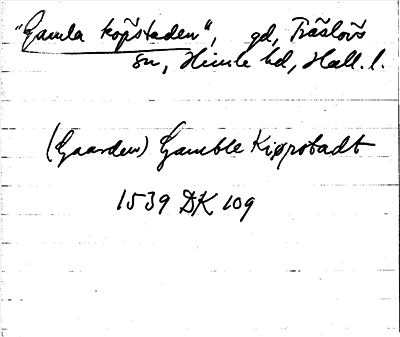 "Gamla köpstaden", gd, Träslövs
sn, Himle hd, Hall. l.
(Gaarden) Gamble Kiøpstadt
1539 DK 109